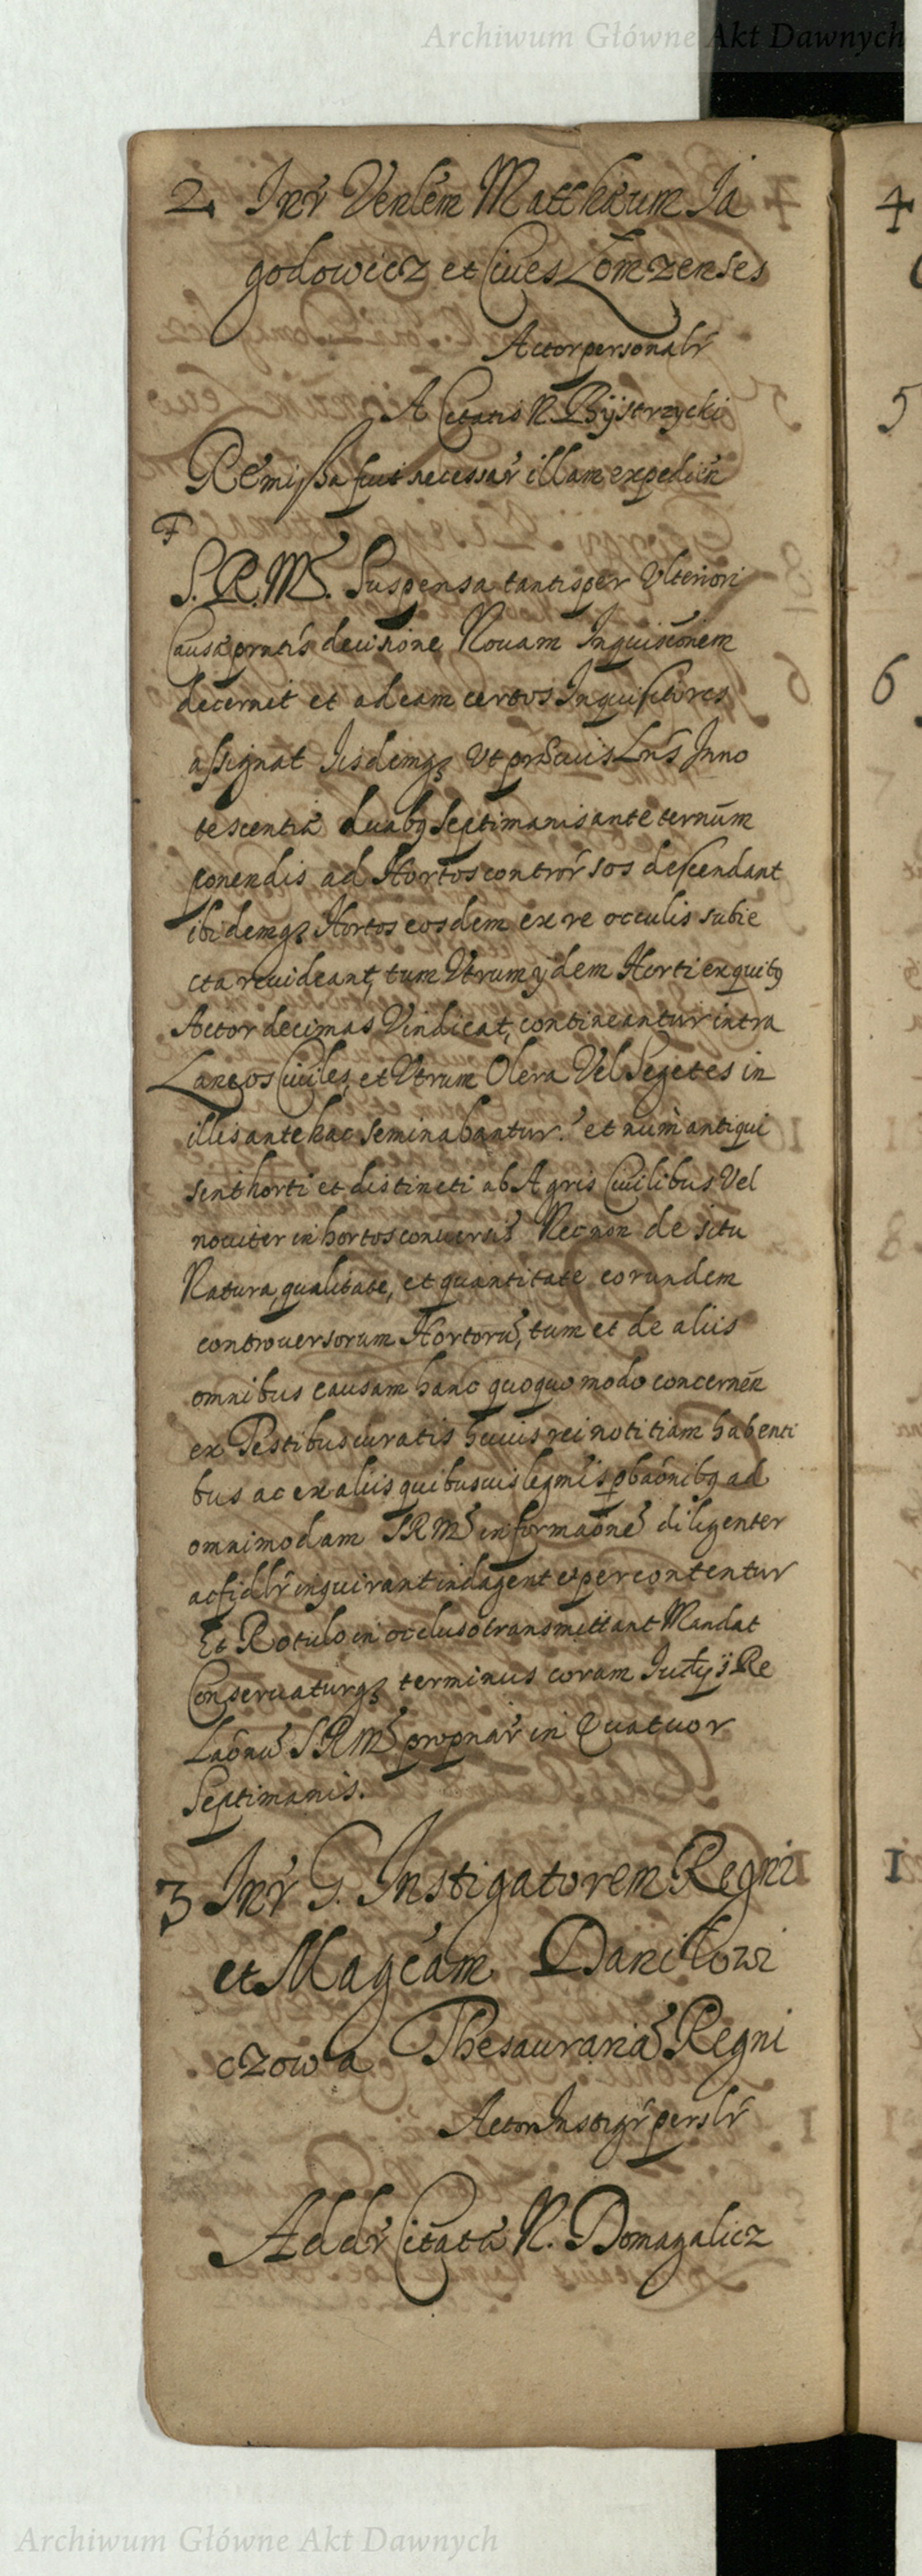 Archiwum Główne Akt Dawnych
2. Inr Venlem Matthaeum Ja
godowicz et Ciues Lomzenses
Actor personalr
A Citatis N. Bÿstrzycki
Remissa fuit necessar illam expedien
S. R. Ms. Suspensa tantisper Ulteriori
Causae pntis decisione Nouam Inquisionem
decernit et ad eam certos Inquisitores
assignat Iisdemq Ut praeuiis Lris Inno
tescentiae duabq septimanis ante ternum
ponendis ad Hortos controrsos descendant
ibidemq Hortos eosdem ex re occulis subie
cta reuideant, tum Utrum ijdem Horti ex quibq
Actor decimas Vindicat, contineantur intra
Laneos Ciuiles, et Utrum Olera Vel Segetes in
illis antehac seminabantur. et num antiqui
sint horti et distincti ab Agris Ciuilibus Vel
nouiter in hortos conuersi Nec non de situ
Natura, qualitate, et quantitate eorundem
controuersorum Hortoru, tum et de aliis
omnibus causam hanc quoquomodo concernen
ex Testibus iuratis huius rei notitiam habenti
bus ac ex aliis quibusuis legmis pbaonibq ad
omnimodam SRMs informaone diligenter
ac fidlr inquirant indagent et percontentur
Et Rotulo in occluso transmittant Mandat
Conseruaturq terminus coram Judÿs Re
Laonu SRMs propnar in Quatuor
Septimanis.
3 Inr G. Instigatorem Regni
et Magcam Danilowi
czowa Thesauraria Regni
Actor Instigr perslr
Addr Citata N. Domagalicz
4
5
6
1
Archiwum Główne Akt Dawnych